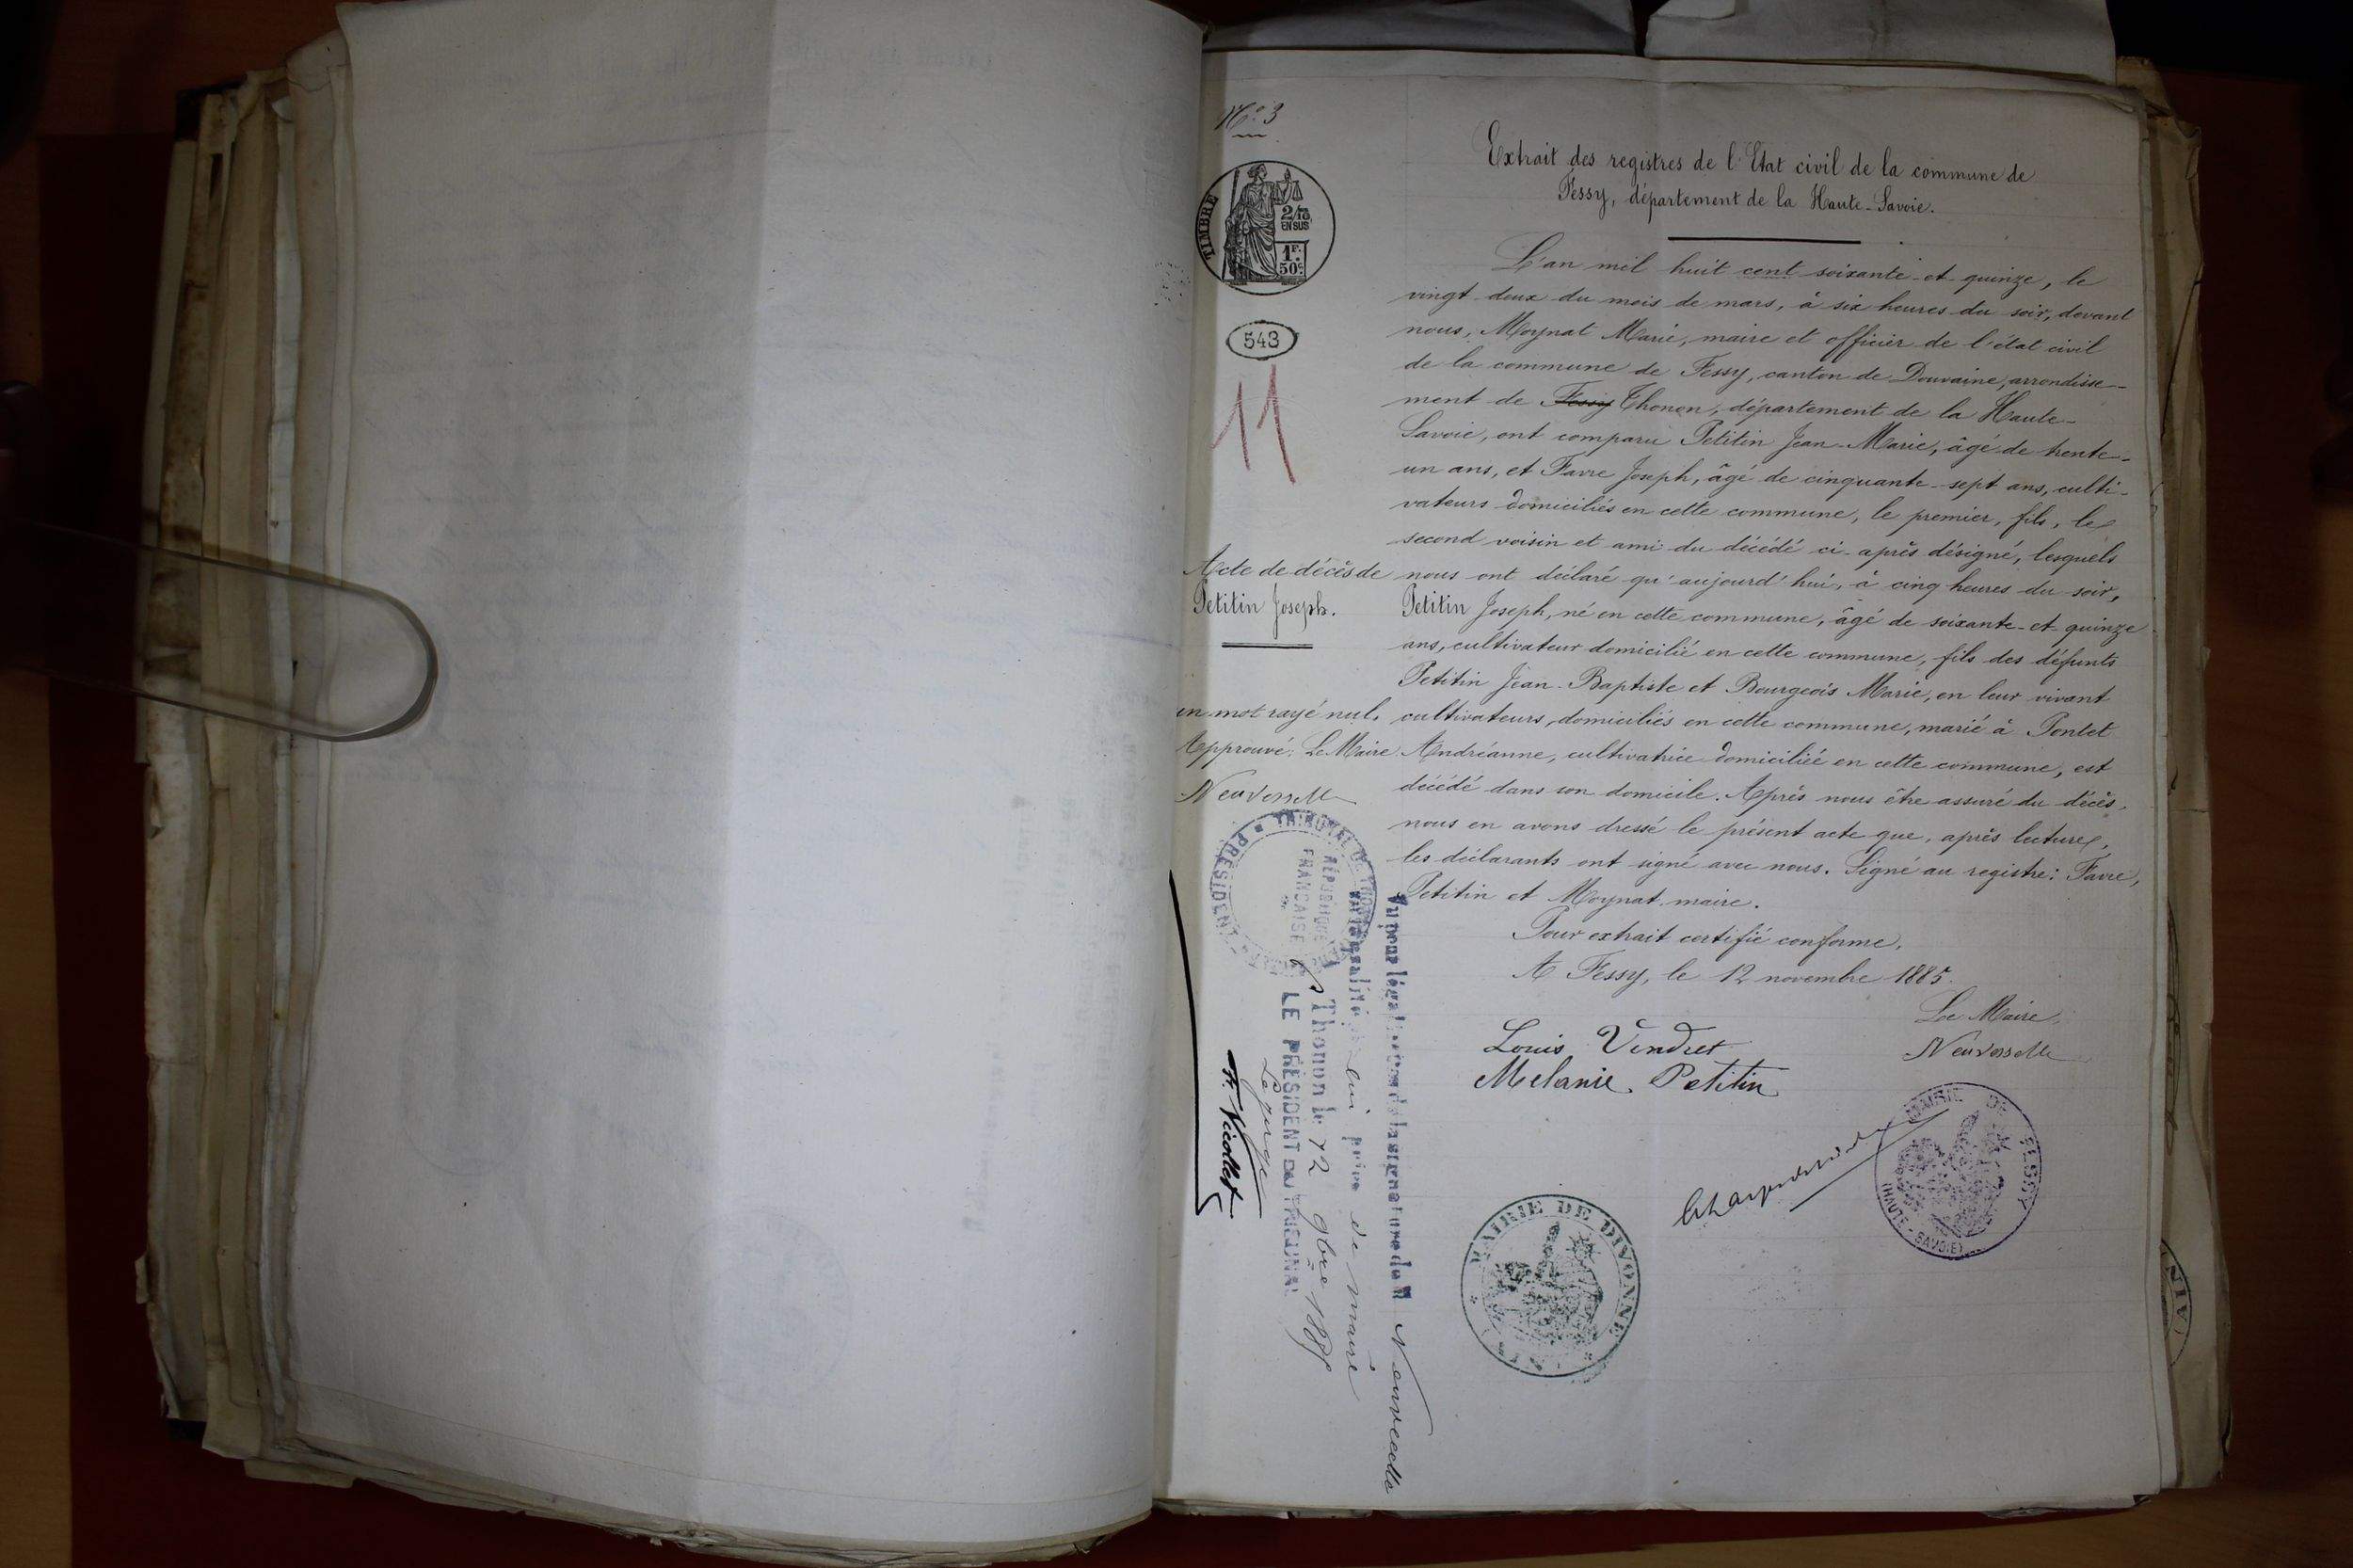 N° 3
TIMBRE
2/10
EN SUS
1F.
50c.
543
11
Extrait des registres de l'Etat civil de la commune de
Fessy, département de la Haute-Savoie.
L'an mil huit cent soixante-et-quinze, le
vingt-deux du mois de mars, à six heures du soir, devant
nous, Moynat Marie, maire et officier de l'état civil
de la commune de Fessy, canton de Douvaine, arrondisse-
ment de Fessy Thonon, département de la Haute-
Savoie, ont comparu Petitin Jean-Marie, âgé de trente-
un ans, et Favre Joseph, âgé de cinquante-sept ans, culti-
vateurs domiciliés en cette commune, le premier, fils, le
second voisin et ami du décédé ci-après désigné, lesquels
nous ont déclaré qu'aujourd'hui, à cinq heures du soir,
Petitin Joseph, né en cette commune, âgé de soixante-et-quinze
ans, cultivateur domicilié en cette commune, fils des défunts
Petitin Jean-Baptiste et Bourgeois Marie, en leur vivant
cultivateurs, domiciliés en cette commune, marié à Pontet
Andréanne, cultivatrice domiciliée en cette commune, est
décédé dans son domicile. Après nous être assuré du décès,
nous en avons dressé le présent acte que, après lecture,
les déclarants ont signé avec nous. Signé au registre: Favre,
Petitin et Moynat maire.
Pour extrait certifié conforme,
A Fessy, le 12 novembre 1885.
Le Maire,
Neuvecelle
Louis Vindret
Melanie Petitin
MAIRIE DE FESSY
(HAUTE-SAVOIE)
MAIRIE DE DIVONNE
(AIN)
Acte de décès de
Petitin Joseph.
un mot rayé nul.
Approuvé: Le Maire
Neuvecelle
PRÉSIDENT
RÉPUBLIQUE
FRANCAISE
Vu pour légalisation de la signature de M Neuvecelle
maire
Thonon le 12 9bre 1885
LE PRÉSIDENT DU TRIBUNAL
Le juge
Nicollet
(AIN)